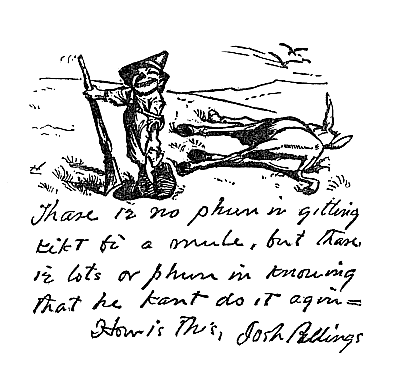 Thare iz no phun in gitting
kikt bi a mule, but thare
iz lots ov phun in knowing
that he kant do it agin=
How is This, Josh Billings